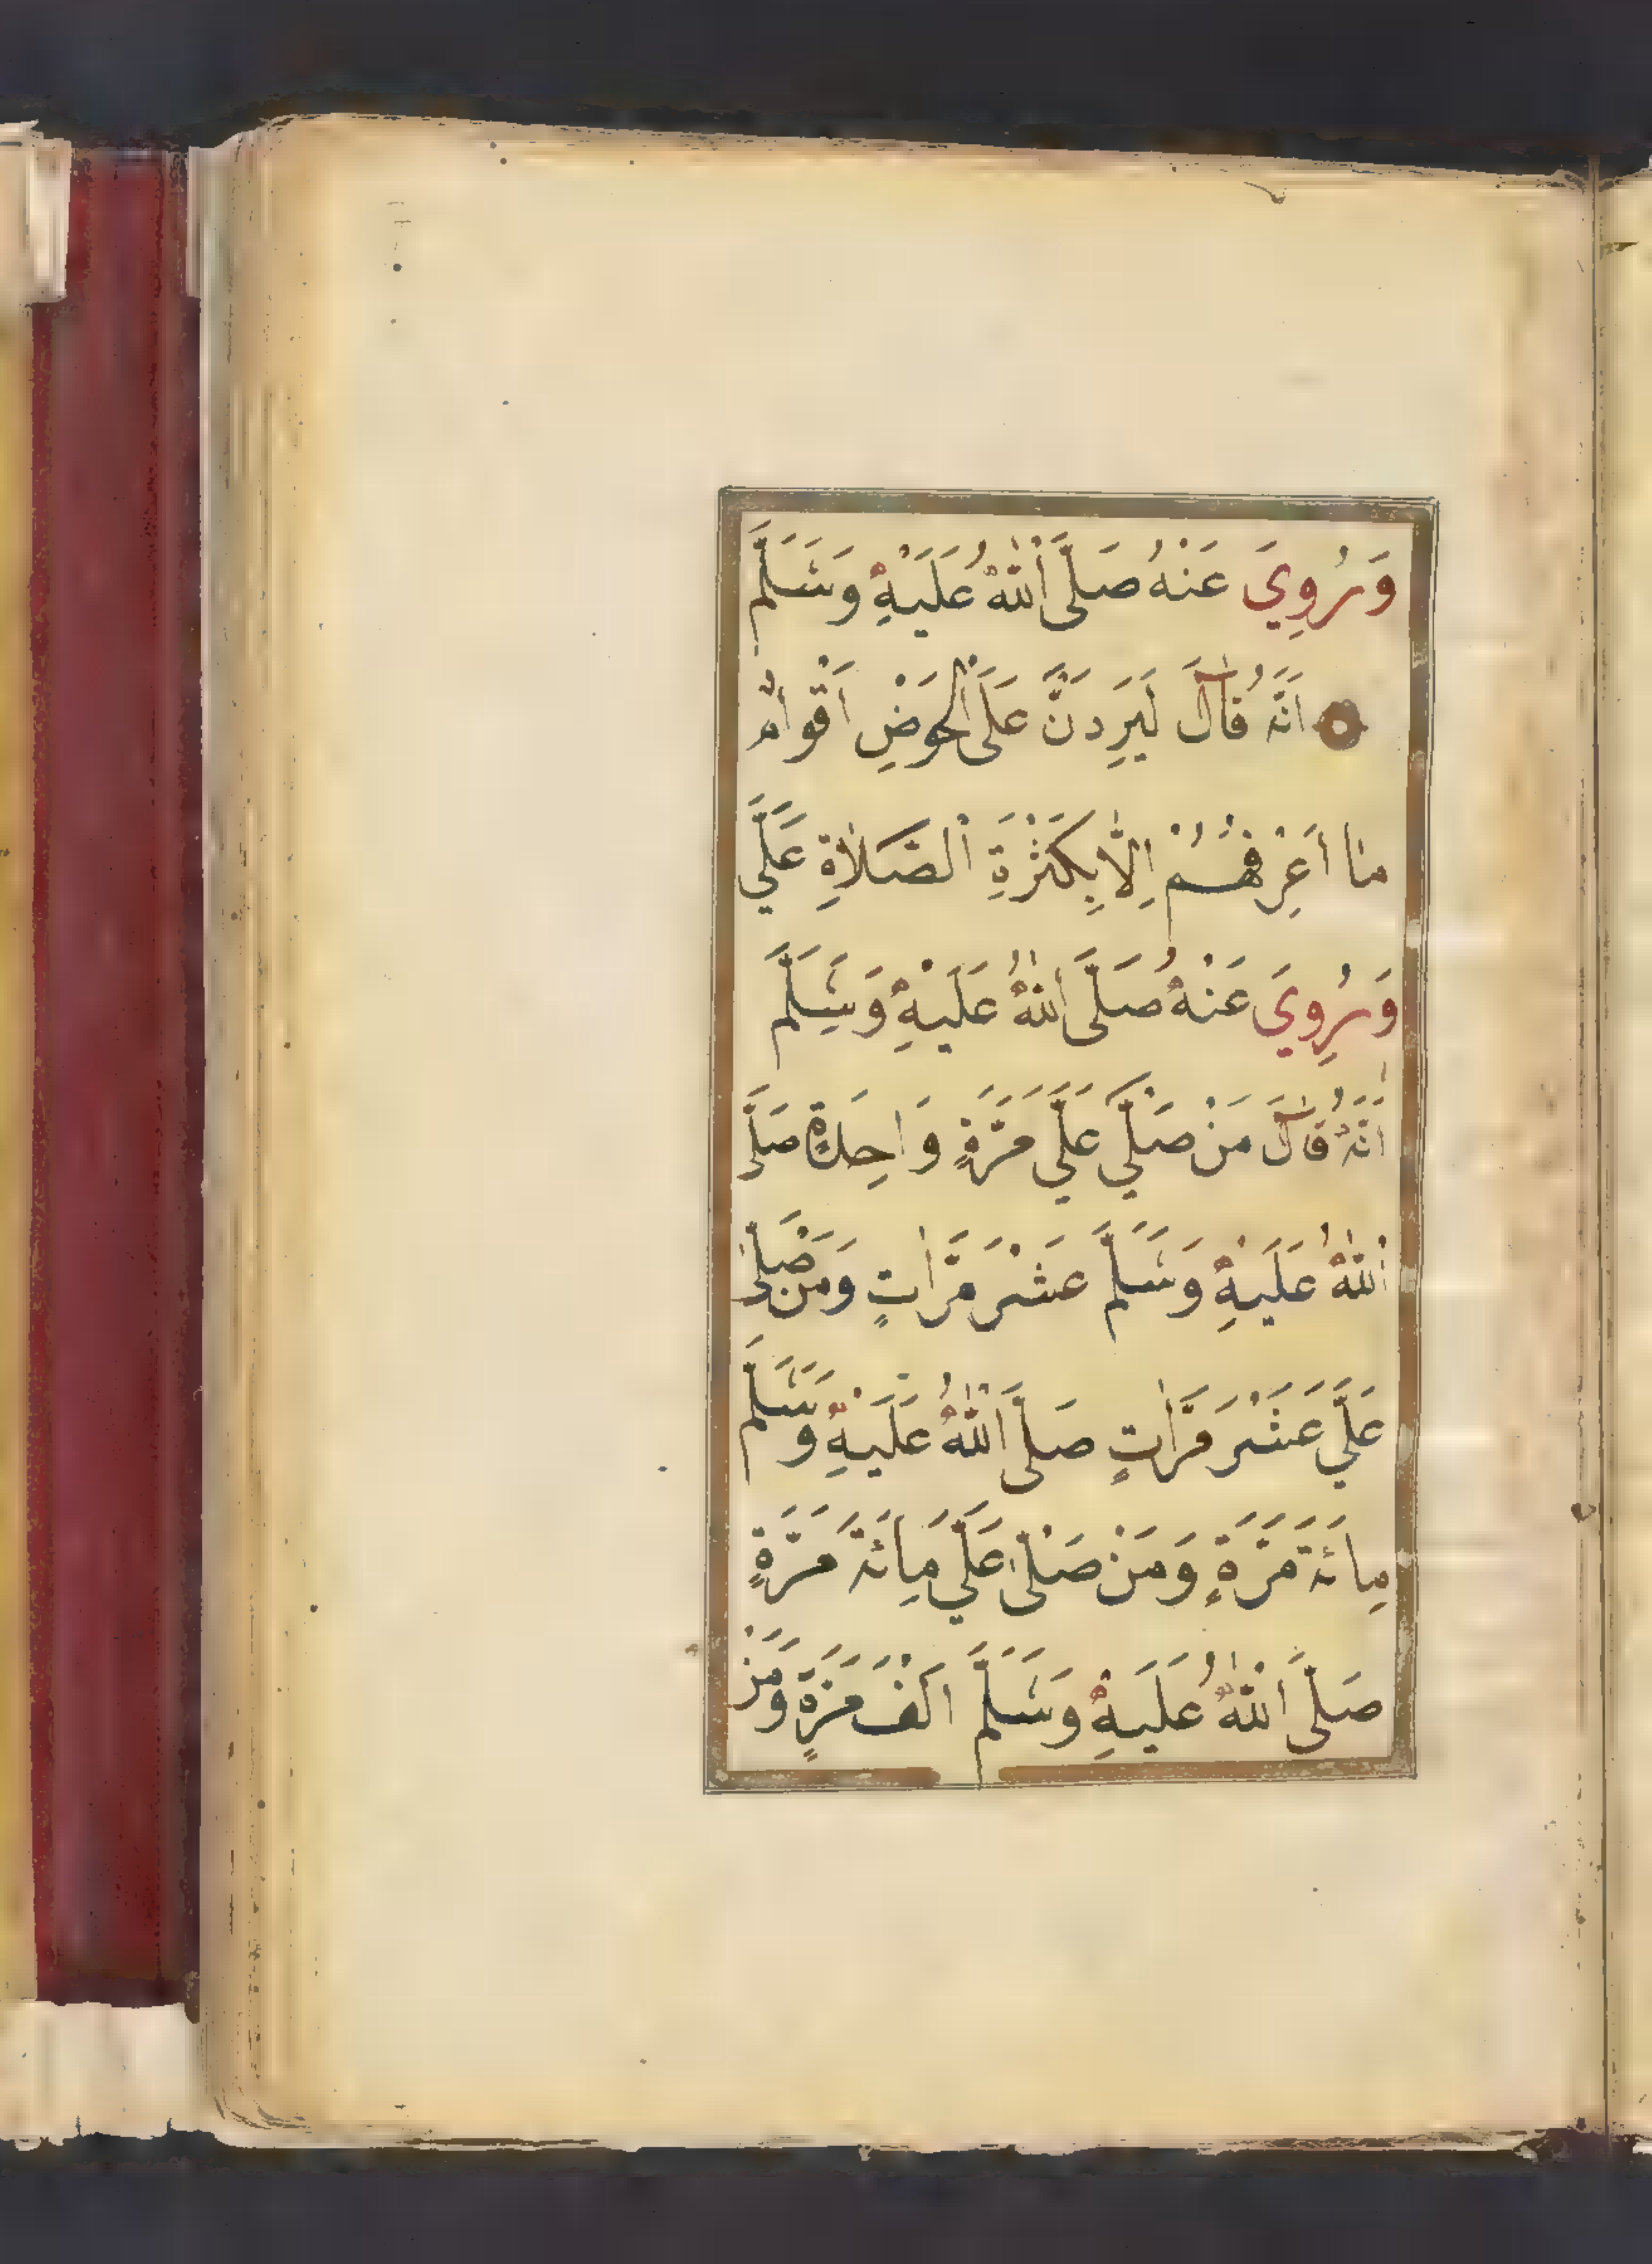 وَرُوِيَ عَنْهُ صَلَّى اللّٰهُ عَلَيْهِ وَسَلَّمَ
اَنَّهُ قَالَ لَيَرِدَنَّ عَلَى الْحَوْضِ اَقْوَامٌ
مَا اَعْرِفُهُمْ اِلَّا بِكَثْرَةِ الصَّلَاةِ عَلَيَّ
وَرُوِيَ عَنْهُ صَلَّى اللّٰهُ عَلَيْهِ وَسَلَّمَ
اَنَّهُ قَالَ مَنْ صَلَّي عَلَيَّ مَرَّةٍ وَاحِدَةٍ صَلَّى
اللّٰهُ عَلَيْهِ وَسَلَّمَ عَشْرَ مَرَّاتٍ وَمَنْ صَلَّى
عَلَيَّ عَشْرَ مَرَّاتٍ صَلَّى اللّٰهُ عَلَيْهِ وَسَلَّمَ
مِائَةَ مَرَّةٍ وَمَنْ صَلَّى عَلَيَّ مِائَةَ مَرَّةٍ
صَلَّى اللّٰهُ عَلَيْهِ وَسَلَّمَ اَلْفَ مَرَّةٍ وَمَنْ